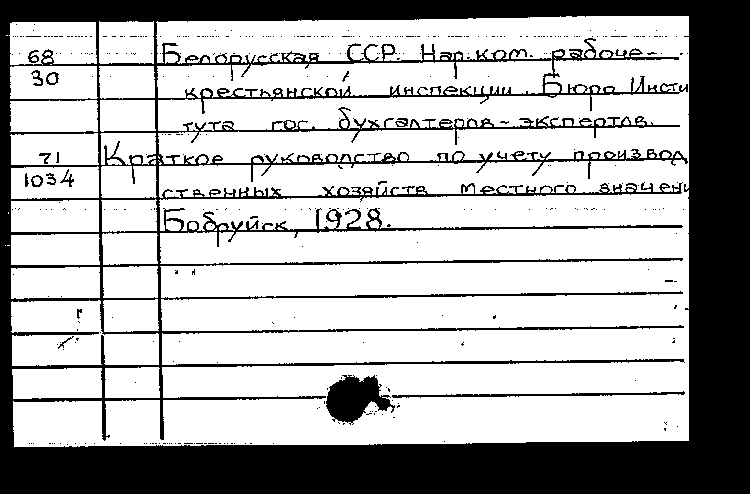 68 Белорусская ССР. Нар.ком. рабоче-
30 крестьянской инспекции. Бюро Инсти
тута гос. бухгалтеров-экспертов.
71 Краткое руководство по учету производ
1034 ственных хозяйств местного значени
Бобруйск, 1928.